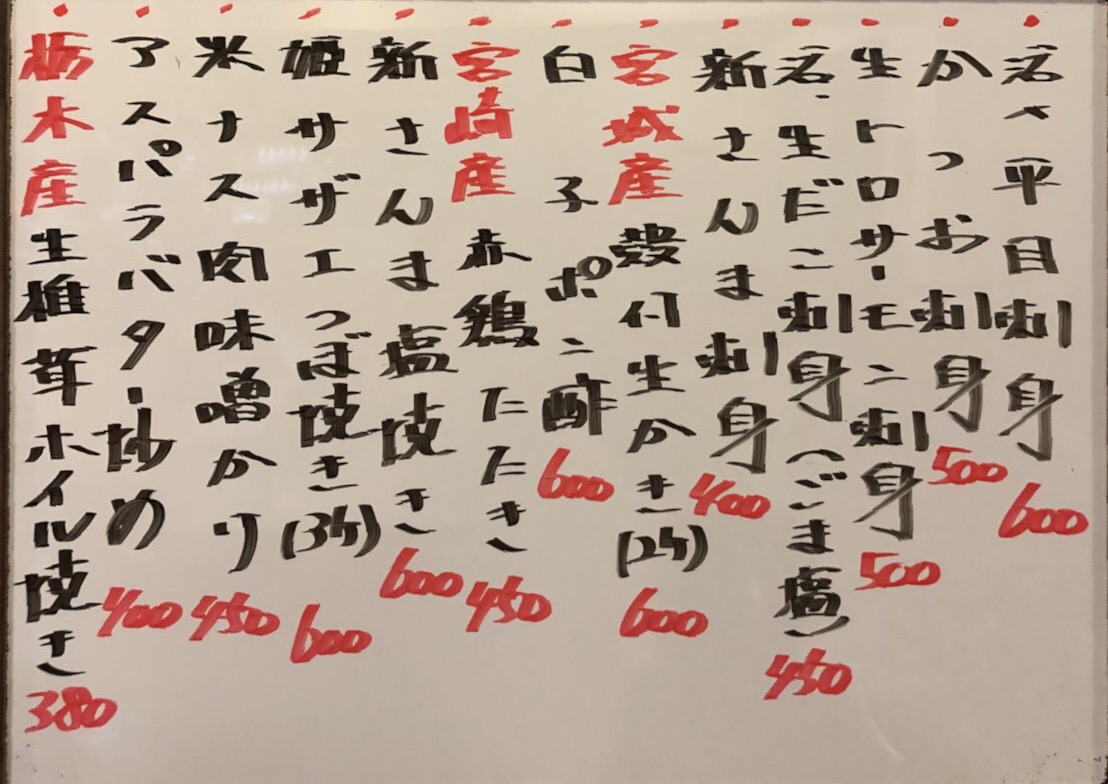 活〆平目刺身 600
かつお刺身 500
生トロサーモン刺身 500
活・生だこ刺身(ごま塩) 450
新さんま刺身 400
宮城産殻付生かき(2ケ) 600
白子ポン酢 600
宮崎産赤鶏たたき 450
新さんま塩焼き 600
姫サザエつぼ焼き(3ケ) 600
米ナス肉味噌かけ 450
アスパラバター炒め 400
栃木産生椎茸ホイル焼き 380